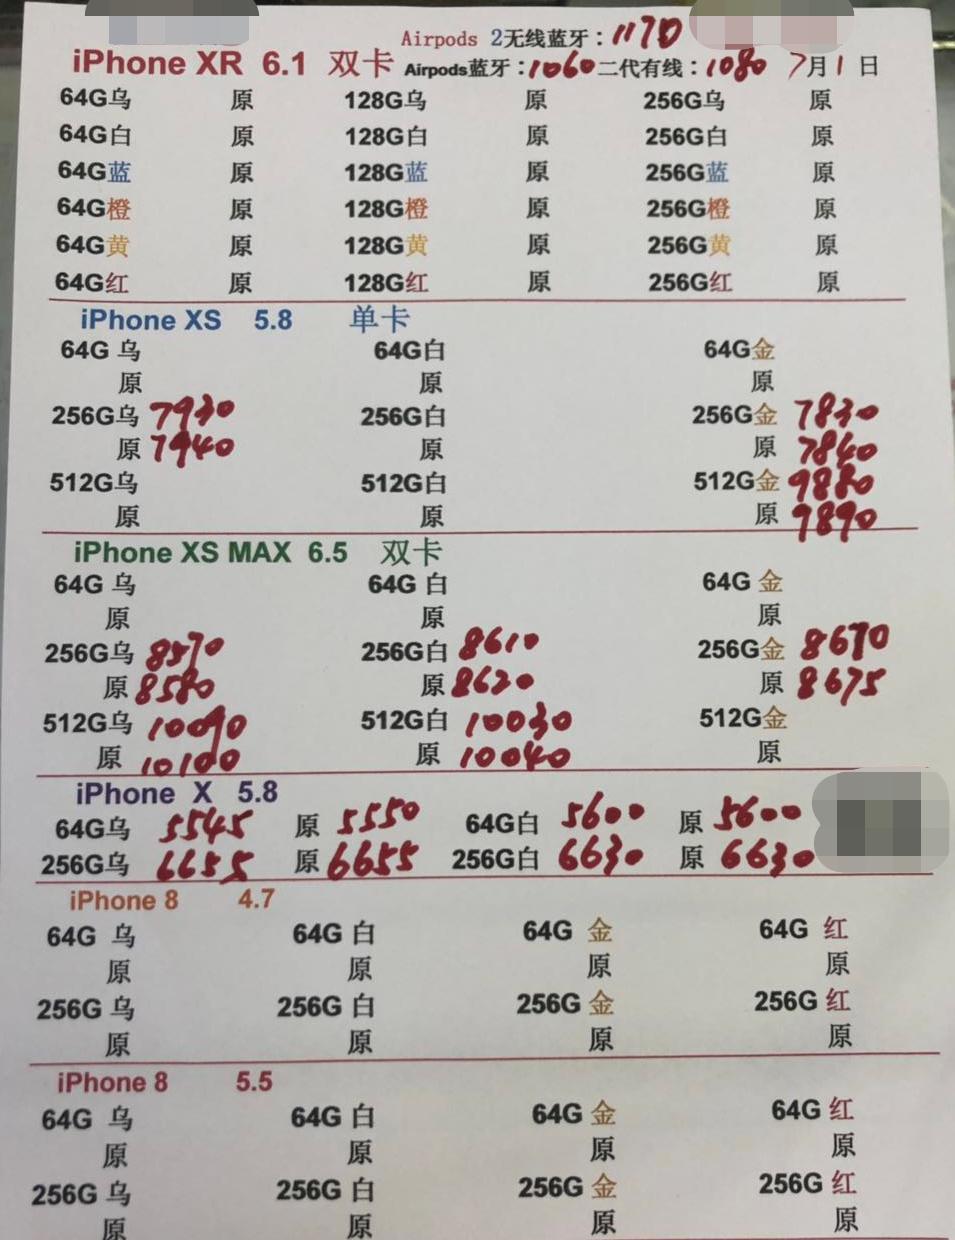 Airpods 2无线蓝牙：1170
iPhone XR 6.1 双卡 Airpods蓝牙：1060 二代有线：1080 7月1日
64G乌 原 128G乌 原 256G乌 原
64G白 原 128G白 原 256G白 原
64G蓝 原 128G蓝 原 256G蓝 原
64G橙 原 128G橙 原 256G橙 原
64G黄 原 128G黄 原 256G黄 原
64G红 原 128G红 原 256G红 原
iPhone XS 5.8 单卡
64G 乌 64G白 64G金
原 原 原
256G乌 7930 256G白 256G金 7830
原 7940 原 原 7840
512G乌 512G白 512G金 9880
原 原 原 9890
iPhone XS MAX 6.5 双卡
64G 乌 64G 白 64G 金
原 原 原
256G乌 8570 256G白 8610 256G金 8670
原 8580 原 8620 原 8675
512G乌 10090 512G白 10030 512G金
原 10100 原 10040 原
iPhone X 5.8
64G乌 5545 原 5550 64G白 5600 原 5600
256G乌 6655 原 6655 256G白 6630 原 6630
iPhone 8 4.7
64G 乌 64G 白 64G 金 64G 红
原 原 原 原
256G 乌 256G 白 256G 金 256G 红
原 原 原 原
iPhone 8 5.5
64G 乌 64G 白 64G 金 64G 红
原 原 原 原
256G 乌 256G 白 256G 金 256G 红
原 原 原 原